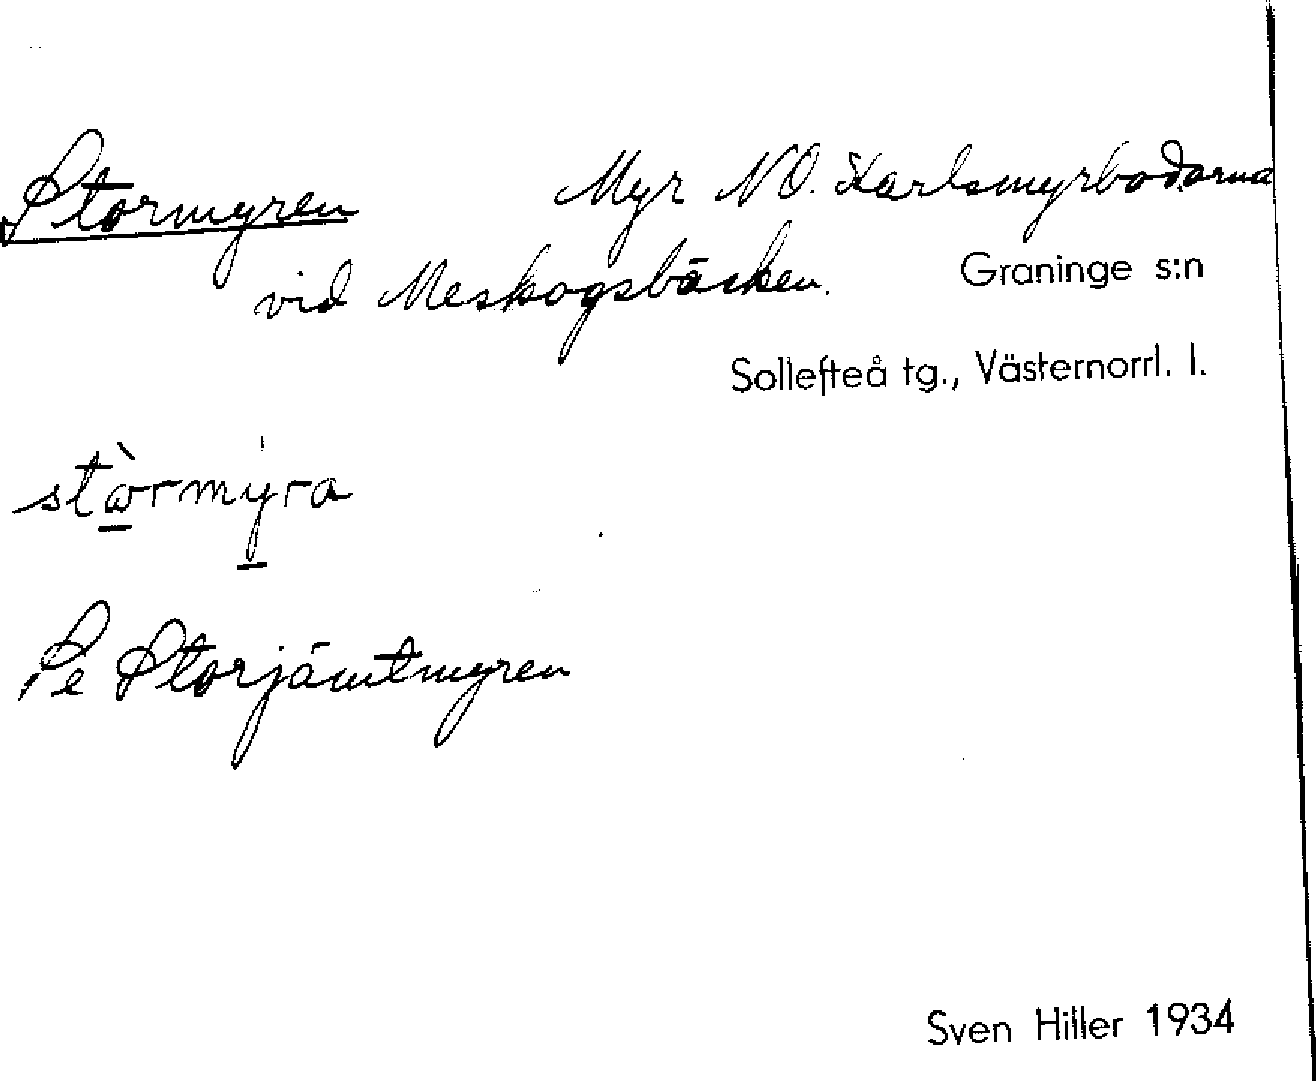 Stormyren Myr NO. Karlsmyrbodarna
vid Meskogsbäcken. Graninge s:n
Sollefteå tg., Västernorrl. l.
stò̱rmy̱̍ra
Se Storjämtmyren
Sven Hiller 1934